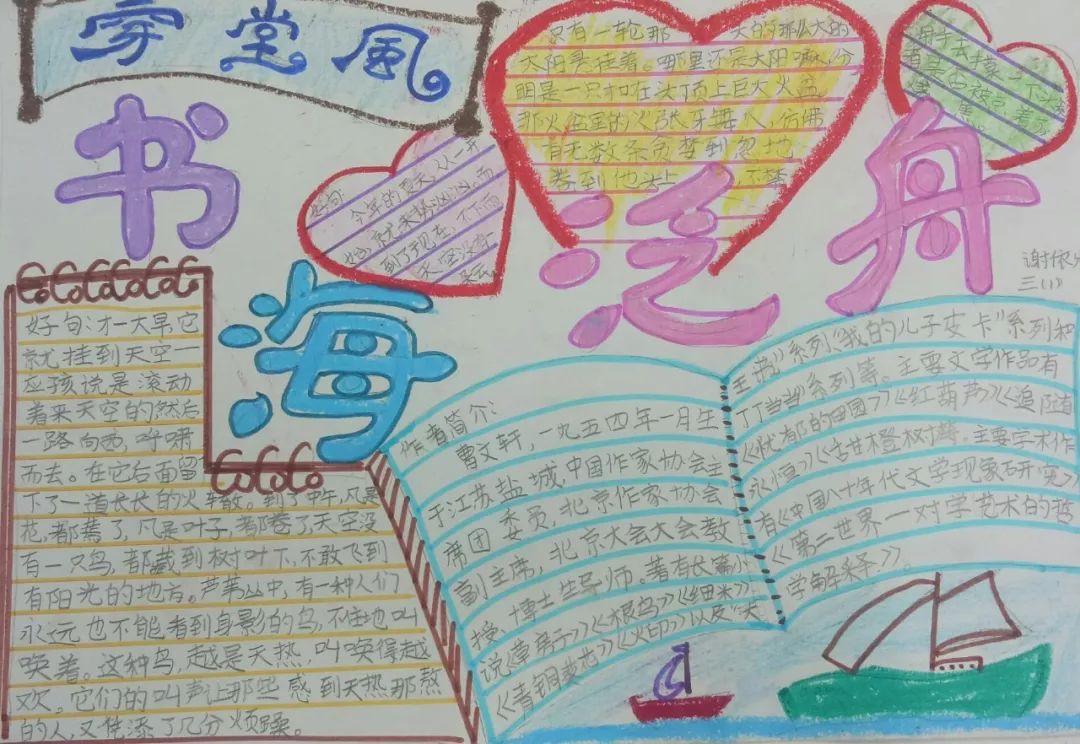 雰堂風
书海泛舟
只有一轮那 大的那么大的
太阳悬挂着。哪里还是太阳嘛,分
明是一只扣在头顶上巨大火盆
那火盆里的火张牙舞爪,仿佛
有无数条贪婪到忽地
卷到他头上
好句:
今年的夏天,从一开
始就来势汹汹。而
到了现在,
天空没有
谢依
三(1)
好句:才一大早,它
就挂到天空一
应该说是滚动
着来天空的,然后
一路向西,呼啸
而去。在它后面留
下了一道长长的火辙。到了中午,凡是
花,都蔫了,凡是叶子,都卷了天空没
有一只鸟,都藏到树叶下,不敢飞到
有阳光的地方。芦苇丛中,有一种人们
永远也不能看到身影的鸟,不住地叫
唤着。这种鸟,越是天热,叫唤得越
欢。它们的叫声让那些感到天热那熬
的人,又凭添了几分烦躁。
作者简介:
曹文轩,一九五四年一月生
于江苏盐城,中国作家协会主
席团委员,北京作家协会
副主席,北京大会大会教
授,博士生导师。著有长篇小
说《草房子》《根鸟》《细米》
《青铜葵花》《火印》以及"大
王书》系列《我的儿子皮卡"系列和
丁丁当当》系列等。主要文学作品有
《忧郁的田园》《红葫芦》《追随
永恒》《甜橙树》等。主要学术作
有《中国八十年代文学现象研究》
《第二世界一对学艺术的哲
学解释》。